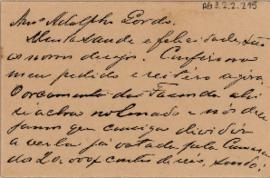 AG 3.2.2.215
Am.º Adolpho Gordo.
Muita saude e felicidade, são
os nossos desejos. Confirmo o
meu pedido e reitero agora,
O orçamento da Fazenda ahi
se acha no Senado e nós dese
jamos que consiga dividir
a verba já votada pela Camara
de 20.000$ contos de reis, sendo: